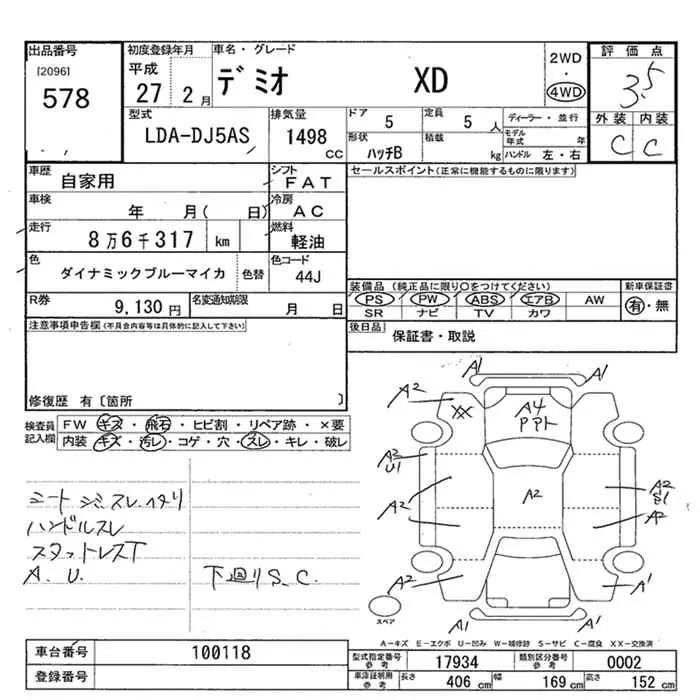 出品番号
[2096]
578
初度登録年月
平成
27 2月
車名・グレード
デミオ XD
2WD
・
4WD
評価点
3.5
外装 内装
C C
型式
LDA-DJ5AS
排気量
1498
CC
ドア
5
定員
5 人
形状
ハッチB
積載
kg
ディーラー・並行
モデル年式 年
ハンドル 左・右
車歴
自家用
シフト
FAT
車検
年 月( 日)
冷房
AC
走行
8万6千317 km
燃料
軽油
色
ダイナミックブルーマイカ
色替
色コード
44J
R券
9,130円
名変通知期限
月 日
セールスポイント(正常に機能するものに限ります)
装備品 (純正品に限り○をつけてください)
新車保証書
PS PW ABS エアB AW
SR ナビ TV カワ
有・無
後日品
保証書・取説
注意事項申告欄(不具合内容等は具体的に記入して下さい)
修復歴 有〔箇所 〕
検査員記入欄
FW キズ・飛石・ヒビ割・リペア跡・×要
内装 キズ・汚レ・コゲ・穴・スレ・キレ・破レ
シートジミスレヘタリ
ハンドルスレ
スタットレスT
A. U.
下回りS.C.
A1 A1
A2 A2
XX
A4
PPト
A2
U1
A2
A2
S1
A2 A2
A2 A1
A1 A1
スペア
A-キズ E-エクボ U-凹み W-補修跡 S-サビ C-腐食 XX-交換済
車台番号
100118
登録番号
型式指定番号
参考
17934
類別区分番号
参考
0002
車庫証明用
参考
長さ 406 cm 幅 169 cm 高さ 152 cm